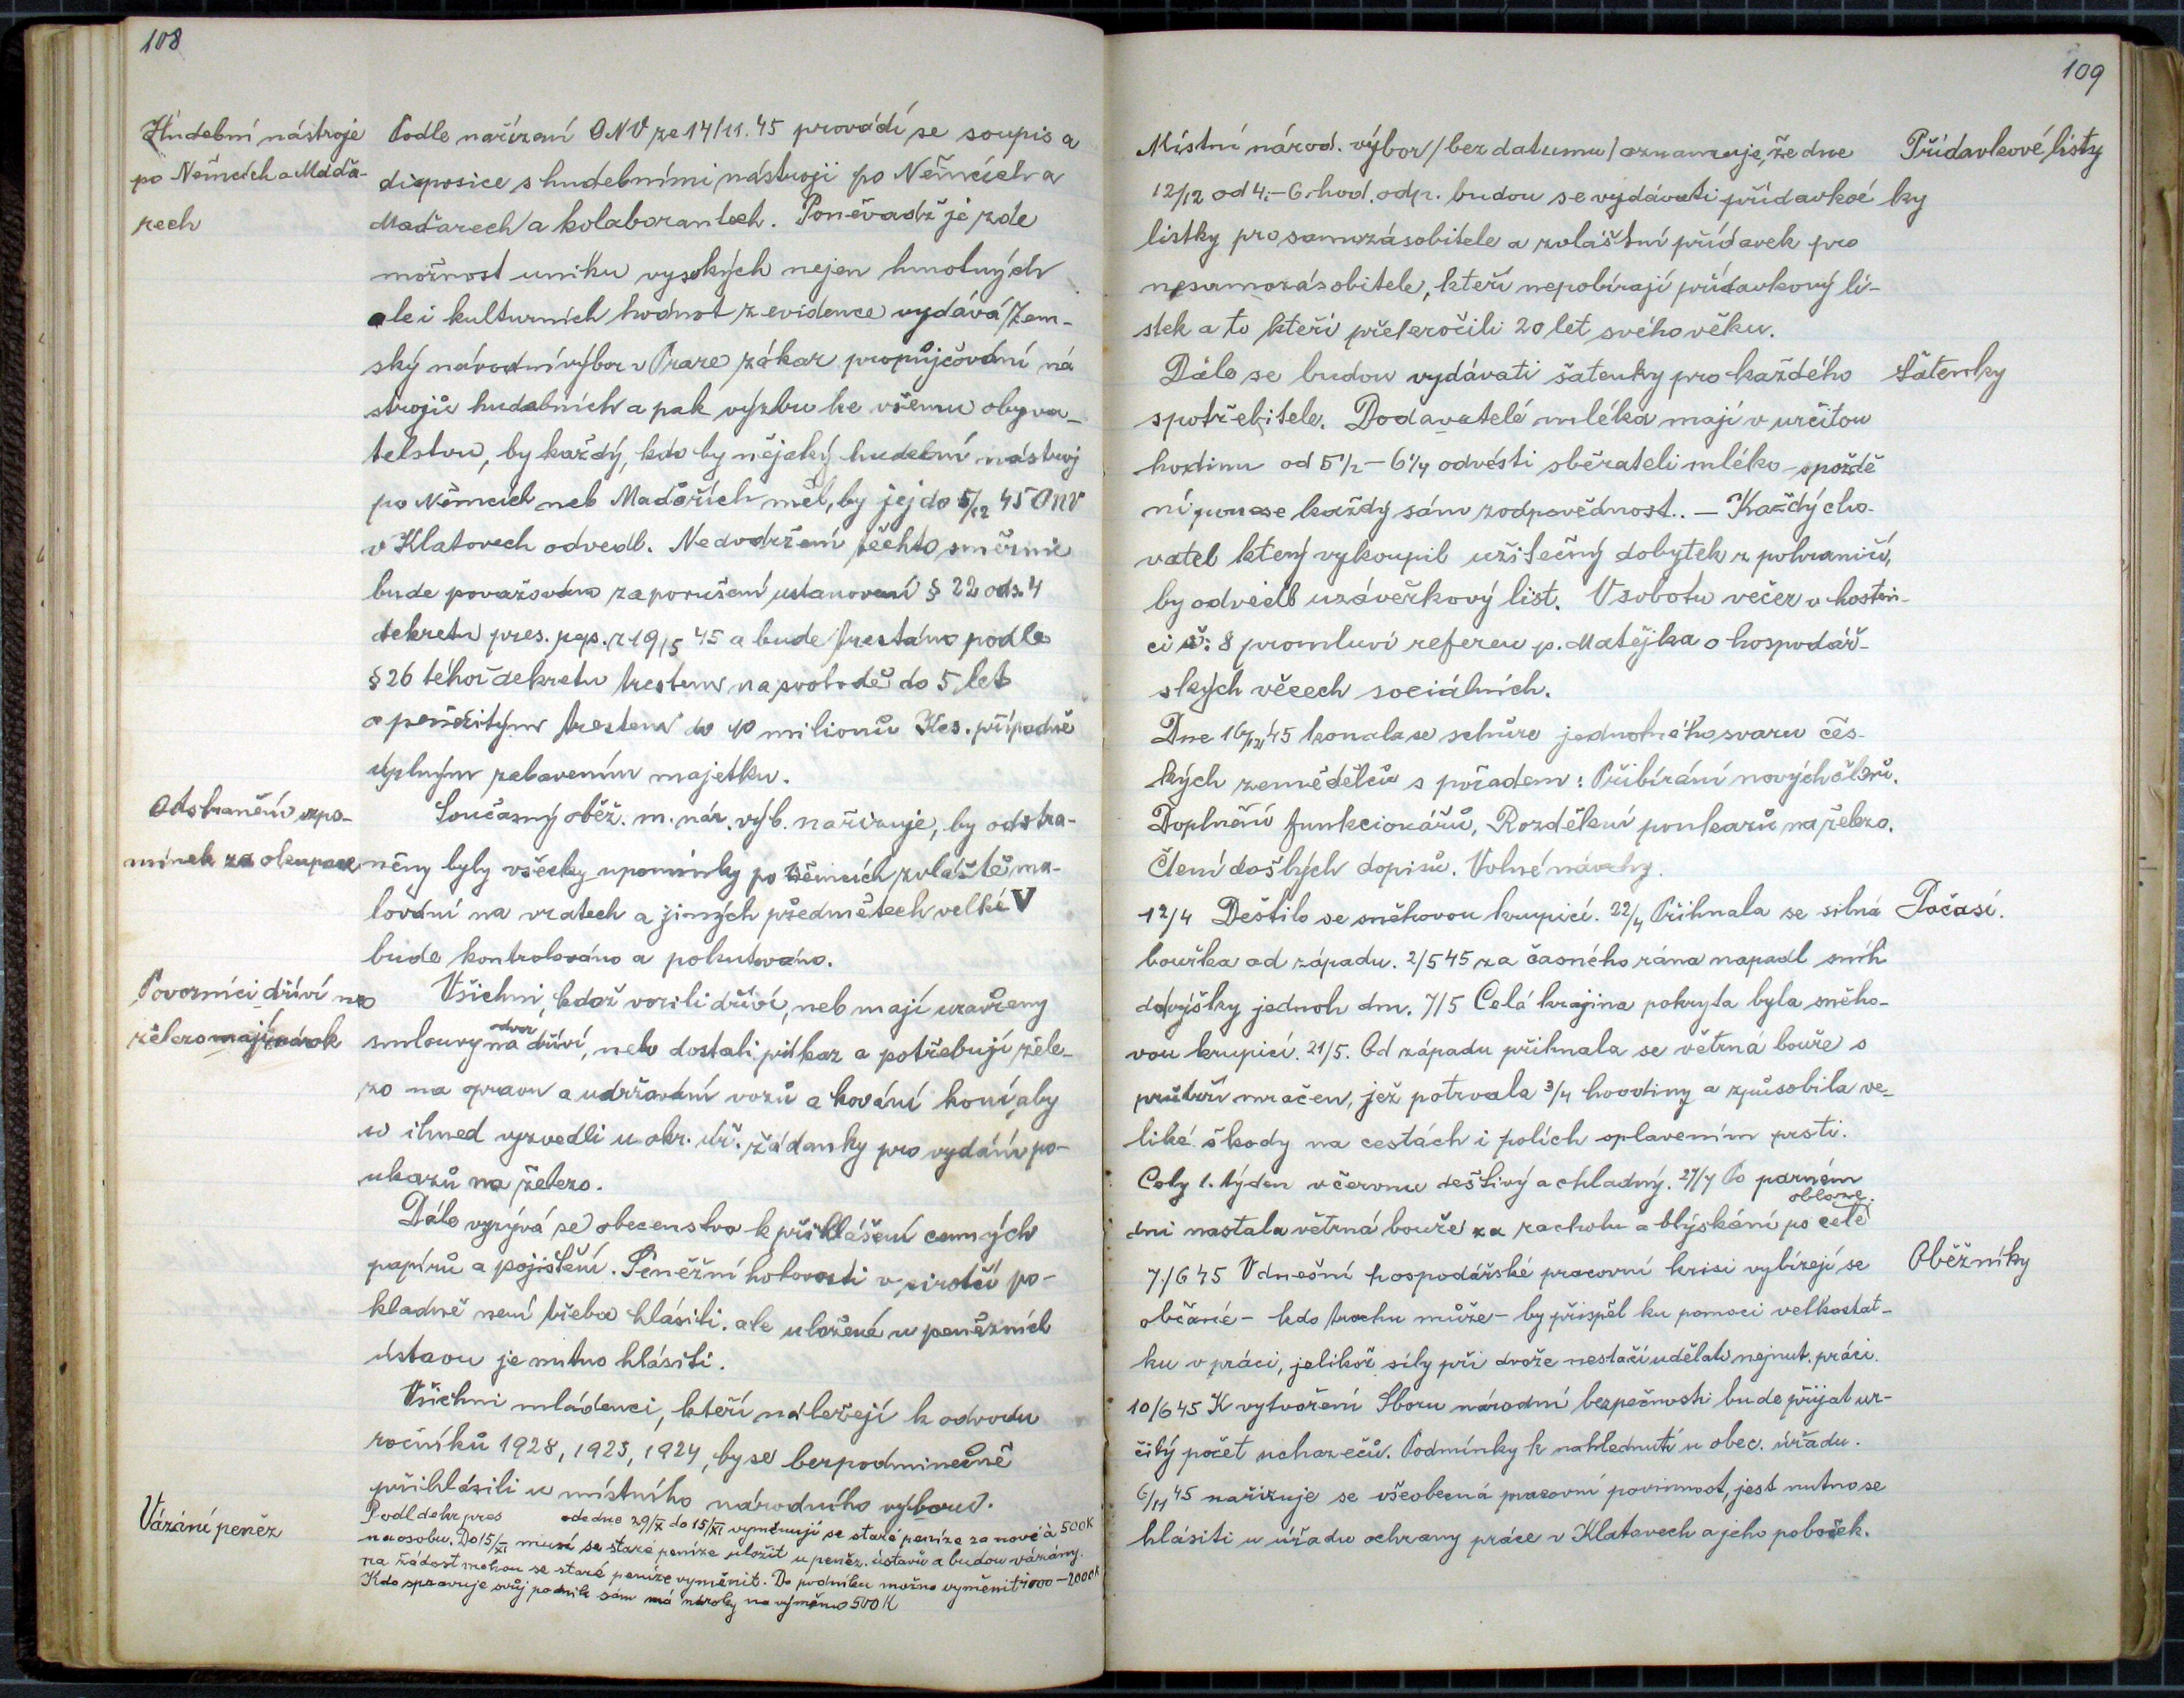 108
Hudební nástroje
po Němcích a Maďa-
rech
Podle nařízení ONV ze 14/11. 45 provádí se soupis a
disposice s hudebními nástroji po Němcích a
Maďarech a kolaborantech. Poněvadž je zde
možnost uniku vysokých nejen hmotných
ale i kulturních hodnot z evidence vydává Zem-
ský národní výbor v Praze zákaz propůjčování ná
strojů hudebních a pak výzvu ke všemu obyva-
telstvu, by každý, kdo by nějaký hudební nástroj
po Němcích neb Maďařích měl, by jej do 5/12 45 ONV
v Klatovech odvedl. Nedodržení těchto směrnic
bude považováno za porušení ustanovení § 22 ods. 4
dekretu pres. rep. z 19/5 45 a bude trestáno podle
§ 26 téhož dekretu trestem na svobodě do 5 let
a peněžitým trestem do 10 milionů Kčs. případně
úplným zabavením majetku.
Odstranění vzpo-
mínek za okupace
Současný oběž. m. nár. výb. nařizuje, by odstra-
něny byly všecky upomínky po Němcích zvláště ma-
lování na vratech a jiných předmětech velké V
bude kontrolováno a pokutováno.
Povozníci dříví na
železo mají nárok
Všichni, kdož vozili dříví, neb mají uzavřeny
smlouvy na odvoz dříví, nebo dostali příkaz a potřebují žele-
zo na opravu a udržování vozů a kování koní, aby
si ihned vyzvedli u okr. úř. žádanky pro vydání po-
ukazů na železo.
Dále vyzývá se obecenstvo k přihlášení cenných
papírů a pojištění. Peněžní hotovosti v sirotčí po-
kladně není třeba hlásiti. ale uložené u peněžních
ústavu je nutno hlásiti.
Všichni mládenci, kteří náležejí k odvodu
ročníků 1928, 1925, 1924, by se bezpodminečně
přihlásili u místního národního výboru.
Vázání peněz
Podl dekr pres ode dne 29/X do 15/XI vyměnují se staré peníze za nové à 500K
na osobu. Do 15/XI musí se staré peníze uložit u peněz. ústavů a budou vázány.
na žádost mohou se staré peníze vyměnit. Do podniku možno vyměnit 1000-2000K
Kdo spravuje svůj podnik sám má nároky na výměnu 500K
109
Místní národ. výbor / bez datumu / oznamuje, že dne
Přídavkové listy
12/12 od 4.-6. hod. odp. budou se vydávati přídavkoé
ky
lístky pro samozásobitele a zvláštní přídavek pro
nesamozásobitele, kteří nepobírají přídavkový lí-
stek a to kteří překročili 20 let svého věku.
Dále se budou vydávati šatenky pro každého
Šatenky
spotřebitele. Dodavatelé mléka mají v určitou
hodinu od 5½-6¼ odvésti sběrateli mléko - opoždě
ní ponese každý sám zodpovědnost.. - Každý cho-
vatel který vykoupil užitečný dobytek z pohraničí,
by odvedl uzávěrkový list. V sobotu večer v hostin-
ci č: 8 promluví referen p. Matějka o hospodář-
ských věcech sociálních.
Dne 16/12 45 konala se schůze jednotného svazu čes-
kých zemědělců s pořadem: Přibírání nových členů.
Doplnění funkcionářů, Rozdělení poukazů na železo.
Čtení došlých dopisů. Volné návrhy.
12/4 Deštilo se sněhovou krupicí. 22/4 Přihnala se silná
Počasí.
bouřka od západu. 2/5 45 za časného rána napadl sníh
do výšky jednoh dm. 7/5 Celá krajina pokryta byla sněho-
vou krupicí. 21/5. Od západu přihnala se větrná bouře s
průtrží mračen, jež potrvala 3/4 hodiny a způsobila ve-
liké škody na cestách i polích splavením prsti.
Celý 1. týden v červnu deštivý a chladný. 27/7 Po parném
dni nastala větrná bouře za rachotu a blýskání po celé obloze.
7./6 45 V dnešní hospodářské pracovní krisi vybízejí se
Oběžníky
občané - kdo trochu může - by přispěl ku pomoci velkostat-
ku v práci, jelikož síly při dvoře nestačí udělati nejnut. práci.
10/6 45 K vytvoření Sboru národní bezpečnosti bude přijat ur-
čitý počet uchazečů. Podmínky k nahlednutí u obec. úřadu.
6/11 45 nařizuje se všeobecná pracovní povinnost, jest nutno se
hlásiti u úřadu ochrany práce v Klatovech a jeho poboček.